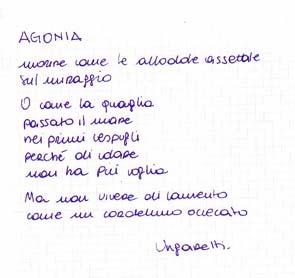 AGONIA
morire come le allodole assetate
sul miraggio
O come la quaglia
passato il mare
nei primi cespugli
perché di volare
non ha più voglia
Ma non vivere di lamento
come un cardellino accecato
Ungaretti.